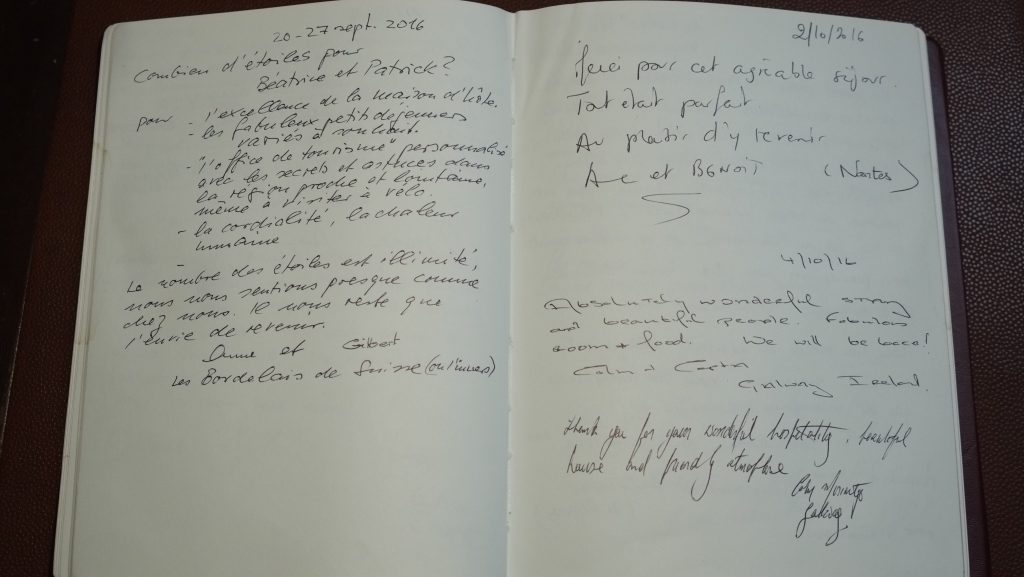 20-27 sept. 2016
Combien d'étoiles pour
Béatrice et Patrick?
pour - l'excellence de la maison d'hôte.
- les fabuleux petits déjeuners
variés à souhait.
- "l'office de tourisme" personnalisé
avec les secrets et astuces dans
la région proche et lointaine,
même à visiter à vélo.
- la cordialité, la chaleur
humaine
Le nombre des étoiles est illimité,
nous nous sentions presque comme
chez nous. Il nous reste que
l'envie de revenir.
Anne et Gilbert
Les Bordelais de Suisse (ou l'inverse)
2/10/2016
Merci pour cet agréable séjour.
Tout était parfait.
Au plaisir d'y revenir
et BENOIT (Nantes)
4/10/16
Absolutely wonderful stay
and beautiful people. Fabulous
room + food. We will be back!
Galway Ireland.
Thank you for your wonderful hospitality, beautiful
house and friendly atmosphere
Galway.